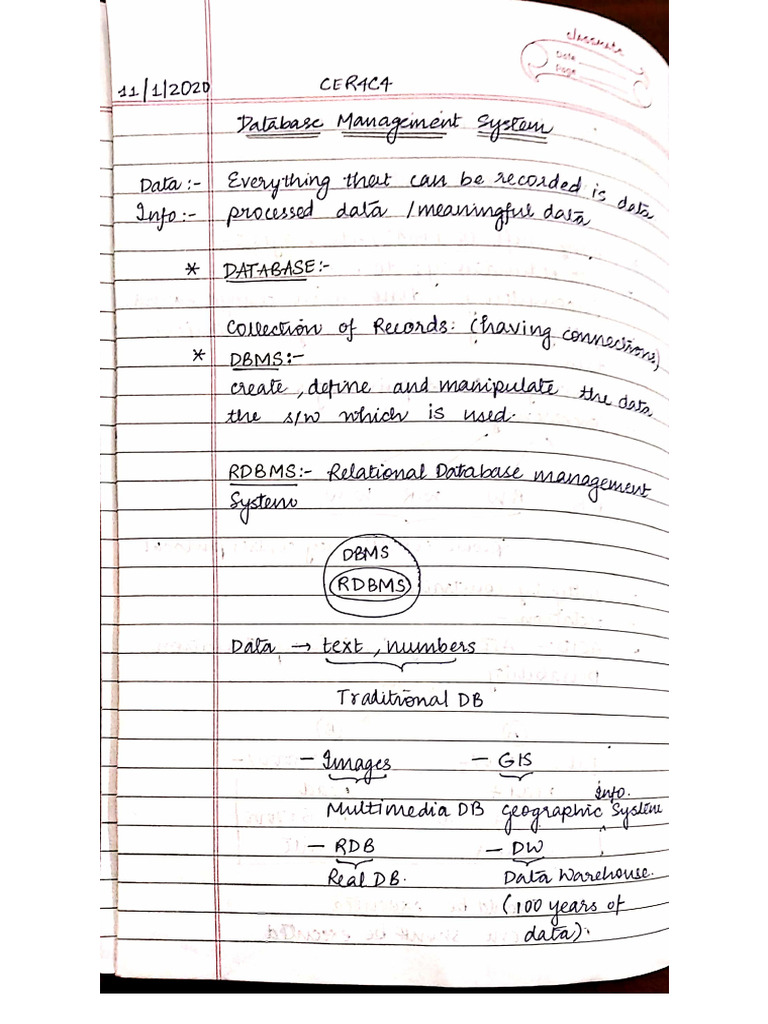 classmate
Date
Page
11/1/2020 CER4C4
Database Management System
Data :- Everything that can be recorded is data
Info :- processed data /meaningful data
* DATABASE:-
Collection of Records: (having connections)
* DBMS:-
create, define and manipulate the data
the s/w which is used.
RDBMS:- Relational Database management
System
DBMS
RDBMS
Data → text, numbers
Traditional DB
- Images - GIS
Info.
Multimedia DB Geographic System
- RDB - DW
Real DB. Data Warehouse.
(100 years of
data)